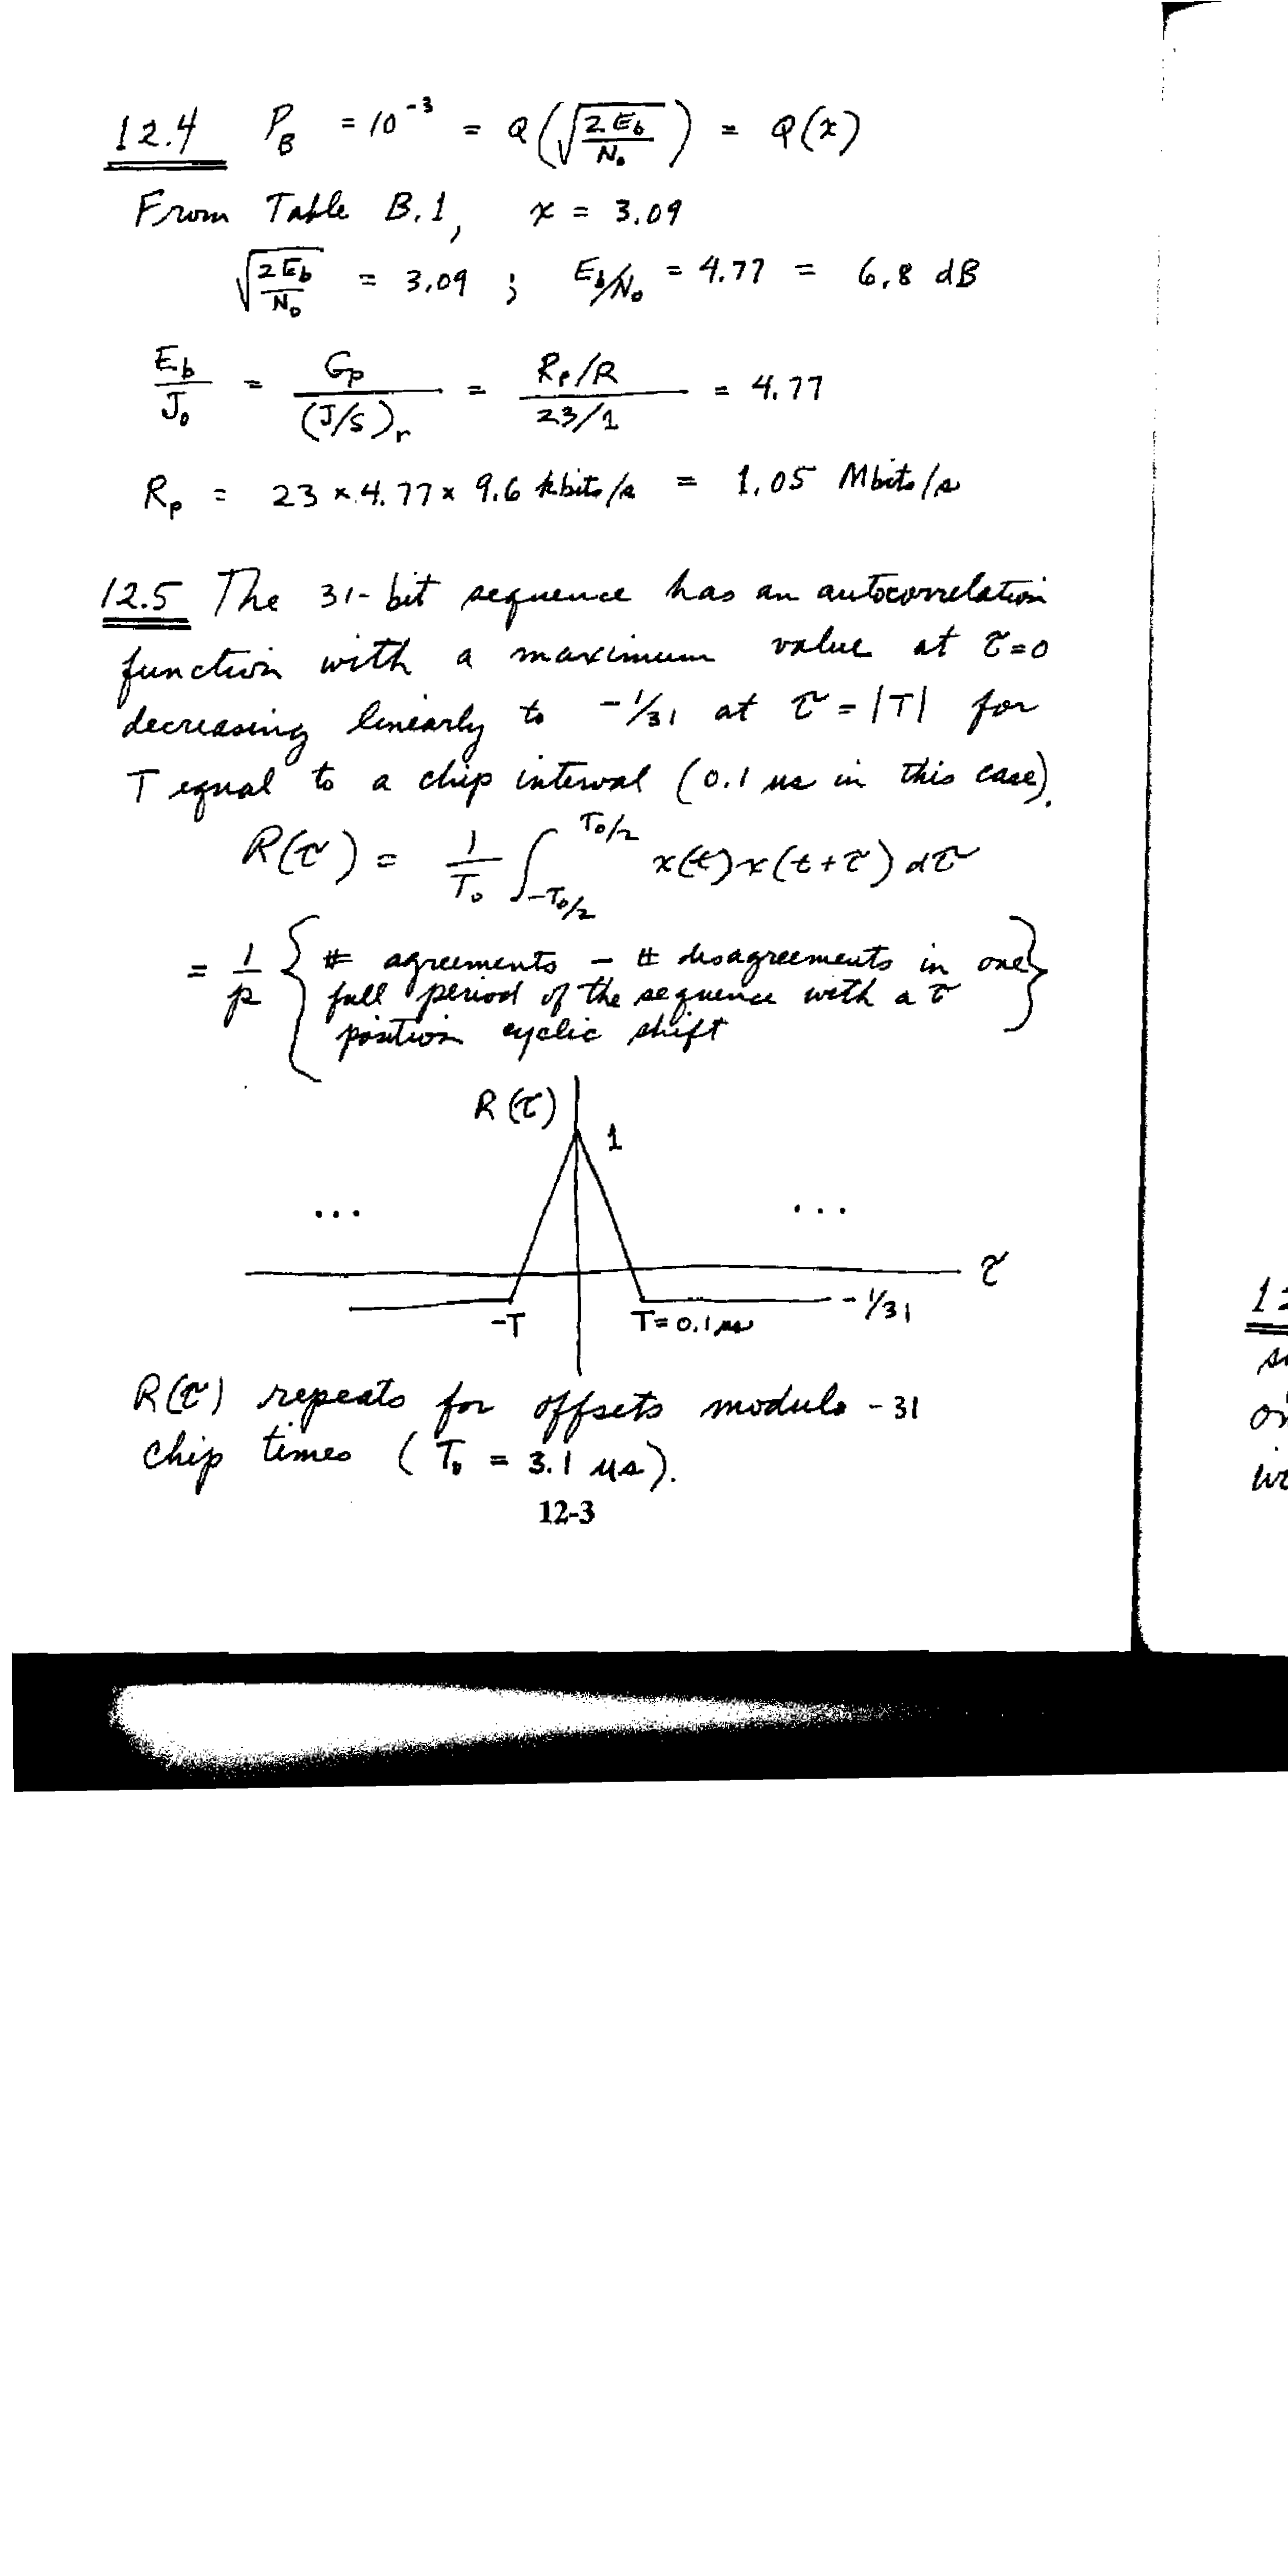 12.4 P_B = 10^-3 = Q(√(2 E_b / N_0)) = Q(x)
From Table B.1, x = 3.09
√(2 E_b / N_0) = 3.09 ; E_b/N_0 = 4.77 = 6.8 dB
E_b / J_0 = G_p / (J/S)_r = (R_p/R) / (23/1) = 4.77
R_p = 23 × 4.77 × 9.6 kbits/s = 1.05 Mbits/s
12.5 The 31-bit sequence has an autocorrelation
function with a maximum value at τ=0
decreasing linearly to -1/31 at τ = |T| for
T equal to a chip interval (0.1 μs in this case).
R(τ) = 1/T_0 ∫_{-T_0/2}^{T_0/2} x(t) x(t+τ) dτ
= 1/p { # agreements - # disagreements in one
full period of the sequence with a τ
position cyclic shift }
R(τ)
1
... ...
τ
-T T = 0.1 μs -1/31
R(τ) repeats for offsets modulo-31
chip times (T_0 = 3.1 μs).
12-3